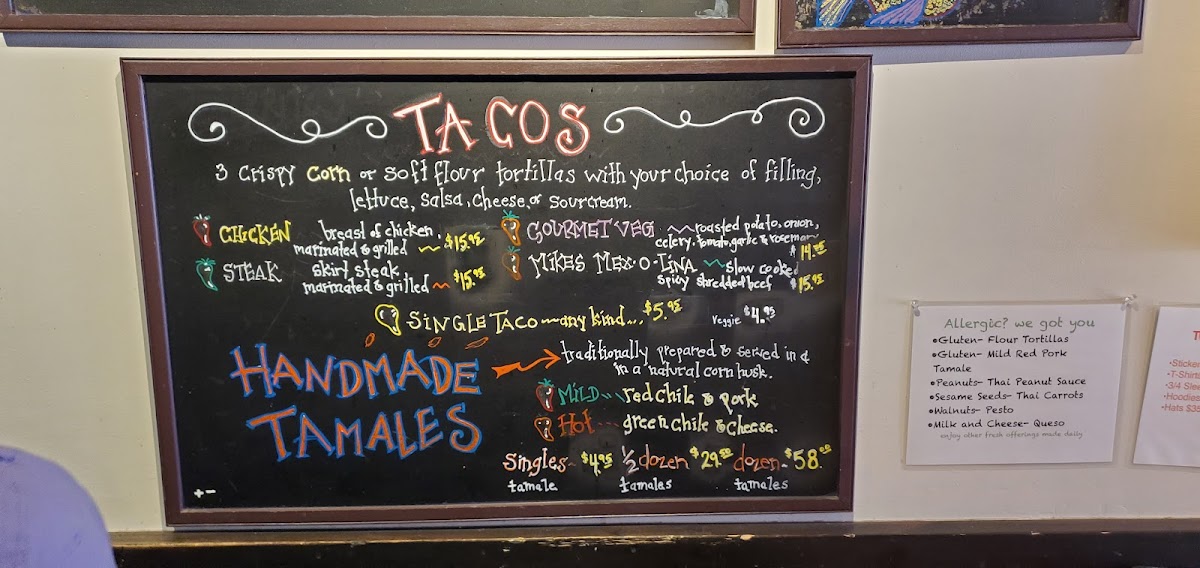 TACOS
3 Crispy Corn or Soft flour tortillas with your choice of filling,
lettuce, salsa, cheese, or sourcream.
CHICKEN breast of chicken,
marinated & grilled $15.95
STEAK skirt steak,
marinated & grilled $15.95
GOURMET VEG roasted potato, onion,
celery, tomato, garlic & rosemary
$14.95
MIKES MEX-O-LINA slow cooked
spicy shredded beef $15.95
SINGLE TACO any kind... $5.95 veggie $4.95
HANDMADE
TAMALES
traditionally prepared & served in a
in a natural corn husk.
MILD red chile & pork
Hot green chile & cheese.
Singles $4.95 1/2 dozen $29.50 dozen $58.00
tamale tamales tamales
+-
Allergic? we got you
•Gluten- Flour Tortillas
•Gluten- Mild Red Pork
Tamale
•Peanuts- Thai Peanut Sauce
•Sesame Seeds- Thai Carrots
•Walnuts- Pesto
•Milk and Cheese- Queso
enjoy other fresh offerings made daily
•Sticker
•T-Shirts
•3/4 Slee
•Hoodies
•Hats $35